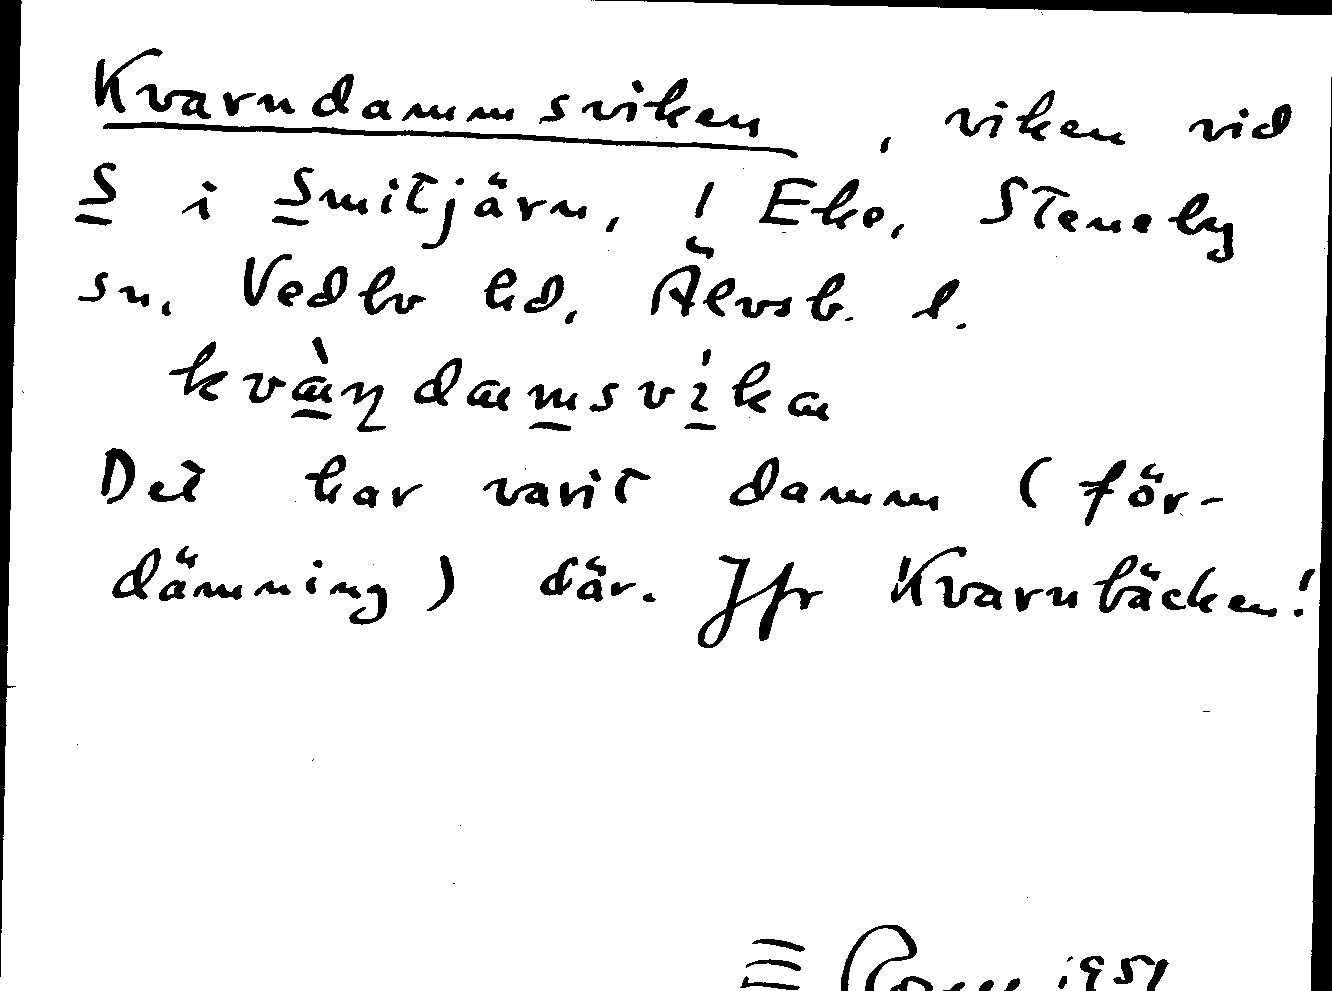 Kvarndammsviken, viken vid
S i Smitjärn, ! Eke, Steneby
sn, Vedbo hd, Älvsb. l.
kvàɳdamsvika
Det har varit damm (för-
dämning) där. Jfr Kvarnbäcken!
1951